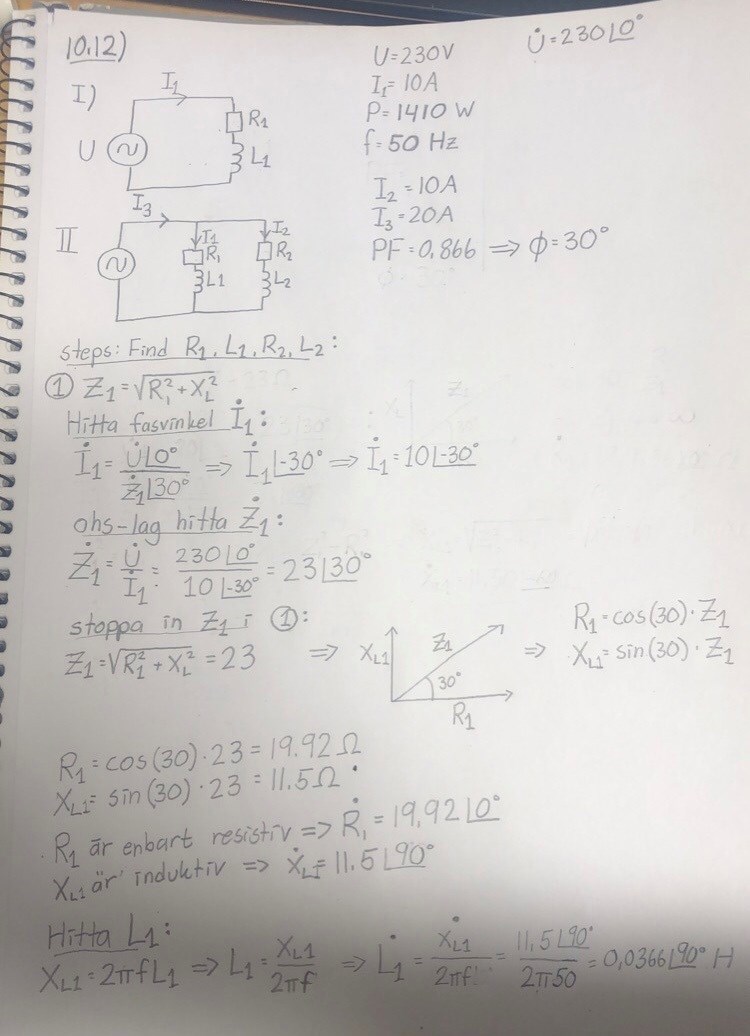 10.12)
U̇=230∠0°
U=230V
I₁=10A
P=1410 W
f=50 Hz
I₂=10A
I₃=20A
PF=0.866 ⇒ ϕ=30°
I)
I₁
R₁
U
L₁
II
I₃
I₁
I₂
R₁
R₂
L1
L₂
steps: Find R₁, L₁, R₂, L₂:
① Z₁=√(R₁²+X_L²)
Hitta fasvinkel İ₁:
İ₁=U̇∠0°/Ż₁∠30° ⇒ İ₁∠-30° ⇒ İ₁=10∠-30°
ohs-lag hitta Ż₁:
Ż₁=U̇/İ₁=230∠0°/10∠-30°=23∠30°
stoppa in Z₁ i ①:
Z₁=√(R₁²+X_L²)=23 ⇒
X_L1
Z₁
30°
R₁
⇒
R₁=cos(30)·Z₁
X_L1=sin(30)·Z₁
R₁=cos(30)·23=19.92Ω
X_L1=sin(30)·23=11.5Ω
R₁ är enbart resistiv ⇒ Ṙ₁=19,92∠0°
X_L1 är induktiv ⇒ Ẋ_L1=11.5∠90°
Hitta L₁:
X_L1=2πfL₁ ⇒ L₁=X_L1/2πf ⇒ L̇₁=Ẋ_L1/2πf=11,5∠90°/2π50=0,0366∠90° H